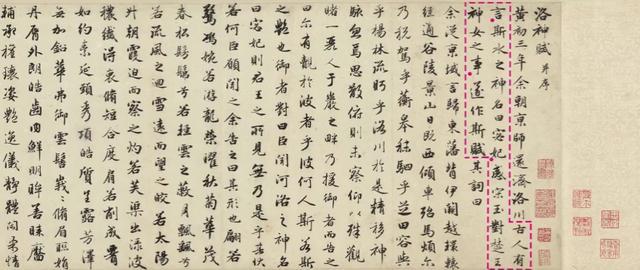 洛神賦 并序
黃初三年余朝京師還濟洛川古人有
言斯水之神名曰宓妃感宋玉對楚王
神女之事遂作斯賦其詞曰
余從京域言歸東藩背伊闕越轘轅
經通谷陵景山日既西傾車殆馬煩爾
乃稅駕乎蘅皋秣駟乎芝田容與
乎楊林流眄乎洛川於是精移神
駭忽焉思散俯則未察仰以殊觀
睹一麗人于巖之畔乃援御者而告之
曰爾有覿於彼者乎彼何人斯若斯
之豔也御者對曰臣聞河洛之神名
曰宓妃則君王之所見無乃是乎其狀
若何臣願聞之余告之曰其形也翩若
驚鴻婉若游龍榮曜秋菊華茂
春松髣髴兮若輕雲之蔽月飄飄兮
若流風之迴雪遠而望之皎若太陽
升朝霞迫而察之灼若芙蕖出淥波
穠纖得衷脩短合度肩若削成腰
如約素延頸秀項皓質呈露芳澤
無加鉛華弗御雲髻峩峩脩眉聯娟
丹脣外朗皓齒內鮮明眸善睞靨
輔承權瓌姿豔逸儀靜體閑柔情